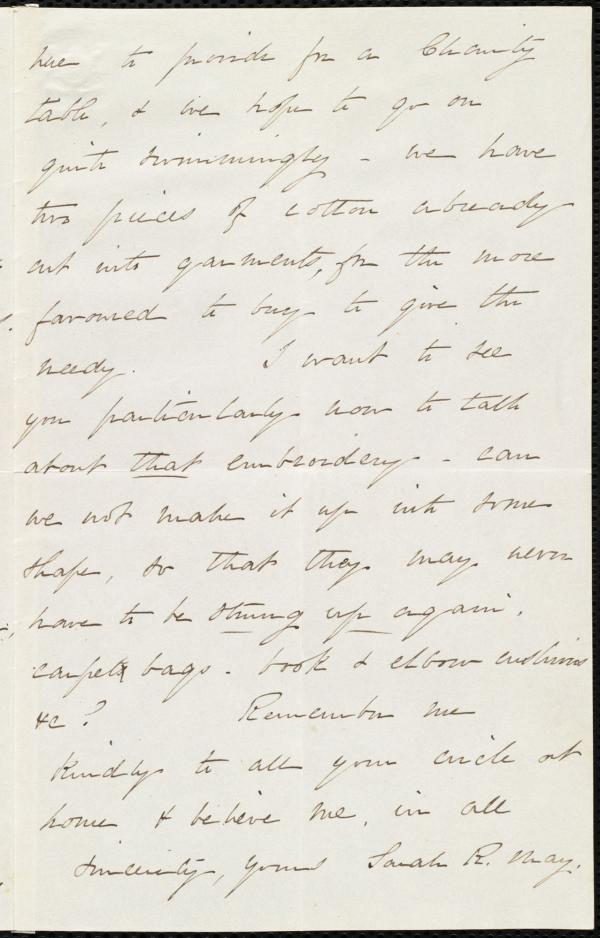 here to provide for a Charity
table, & we hope to go on
quite swimmingly - we have
two pieces of cotton already
cut into garments, for the more
favoured to buy to give the
needy. I want to see
you particularly now to talk
about that embroidery - can
we not make it up into some
shape, so that they may never
have to be strung up again.
carpet bags - book & elbow cushions
&c? Remember me
kindly to all your circle at
home & believe me, in all
sincerity, yours Sarah R. May.